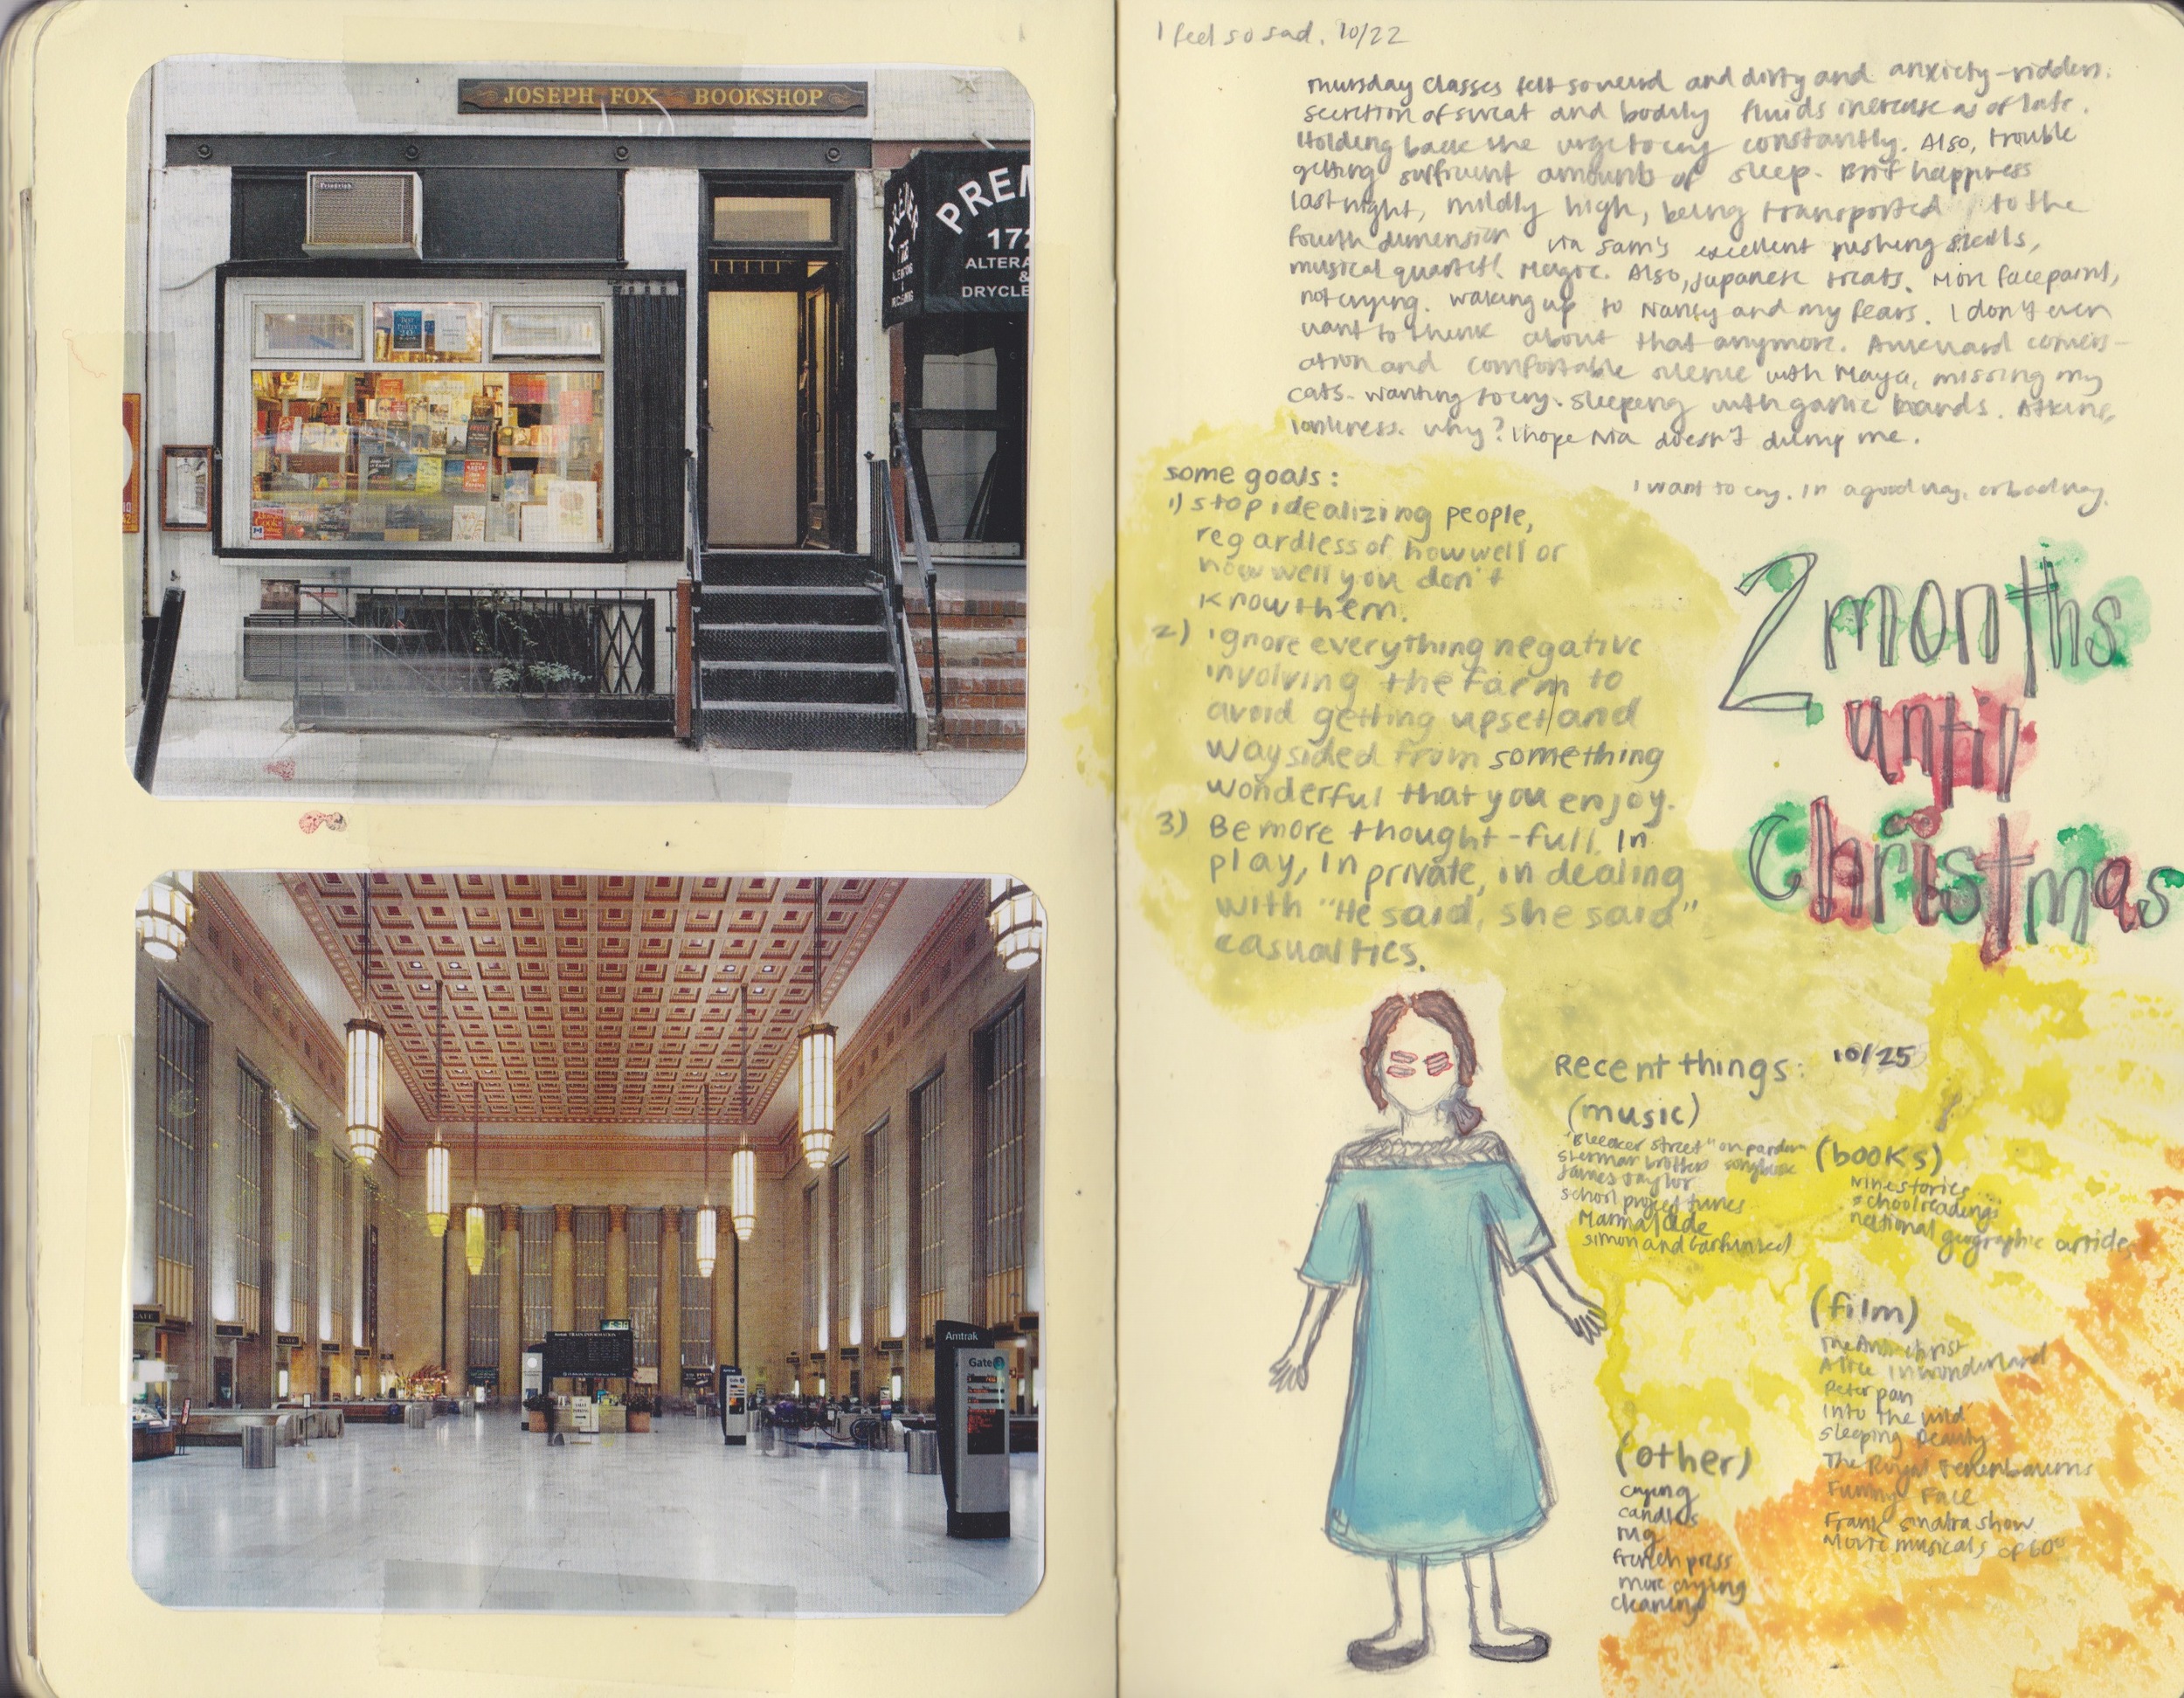 JOSEPH FOX BOOKSHOP
Friedrich
PREM
172
ALTERA
&
DRYCLE
GATE
TRAIN INFORMATION
Amtrak
Gate
I feel so sad. 10/22
Thursday classes felt so weird and dirty and anxiety-ridden.
secretion of sweat and bodily fluids increase as of late.
Holding back the urge to cry constantly. Also, trouble
getting sufficient amounts of sleep. Brief happiness
last night, mildly high, being transported to the
fourth dimension via Sam's excellent pushing skills,
musical quartet! Magic. Also, Japanese treats. More facepaint,
not crying. Waking up to Nancy and my fears. I don't even
want to think about that anymore. Awkward convers-
ation and comfortable silence with Maya, missing my
cats. Wanting to cry. Sleeping with garlic hands.
loneliness. why? I hope Nia doesn't dump me.
I want to cry. In a good way, or bad way.
some goals:
1) stop idealizing people,
regardless of how well or
how well you don't
know them.
2) ignore everything negative
involving the farm to
avoid getting upset and
waysided from something
wonderful that you enjoy.
3) Be more thought-full. In
play, in private, in dealing
with "He said, she said"
casualties.
2 months
until
Christmas
Recent things: 10/25
(music)
"Bleecker Street" on
Sherman brothers songbook
James Taylor
school project tunes
Marmalade
Simon and Garfunkel
(books)
Nine stories
school readings
national geographic article
(film)
The Antichrist
Alice in wonderland
Peter pan
Into the wild
Sleeping Beauty
The Royal Tenenbaums
Funny Face
Frank Sinatra show
Movie musicals of 60s
(other)
crying
candles
rug
french press
more crying
cleaning